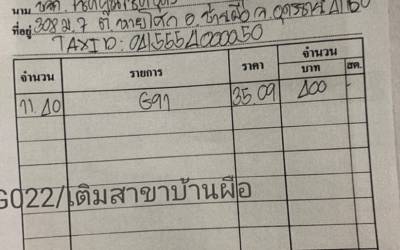 นาม
ที่อยู่ 308 ม.7 ต. อ.บ้านผือ จ.อุดรธานี 41160
TAXID: 0415554000050
จำนวน รายการ ราคา จำนวน
บาท สต.
11.40 G91 35.09 400 -
G022/เติมสาขาบ้านผือ